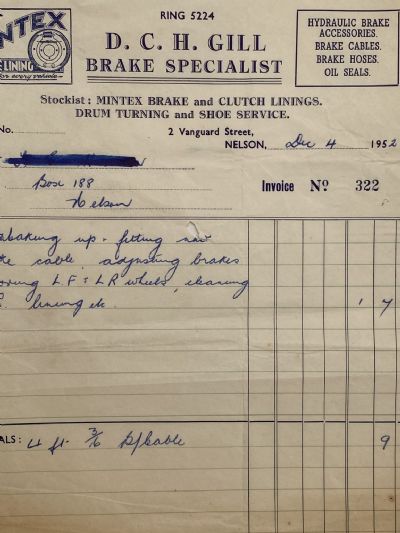 RING 5224
INTEX
E LINING
for every vehicle
D. C. H. GILL
BRAKE SPECIALIST
HYDRAULIC BRAKE
ACCESSORIES.
BRAKE CABLES.
BRAKE HOSES.
OIL SEALS.
Stockist: MINTEX BRAKE and CLUTCH LININGS.
DRUM TURNING and SHOE SERVICE.
No.
2 Vanguard Street,
NELSON, Dec 4 1952
Box 188
Nelson
Invoice No 322
up - fitting new
ke cable, adjusting brakes
oving L.F & L R wheels, cleaning
lining etc. 1 7
ALS: 4 ft. 3/6 cable 9